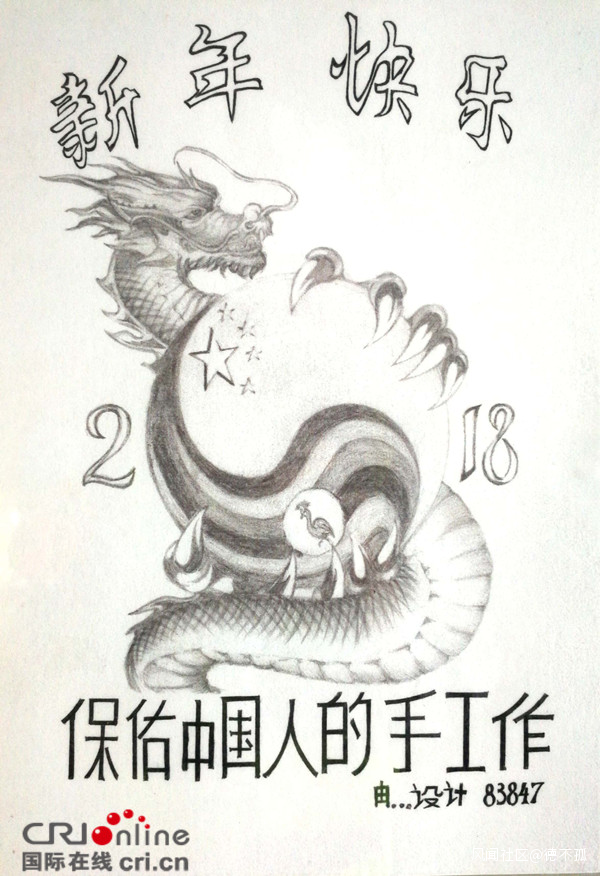 新年快乐
2 18
保佑中国人的手工作
由...设计 83847
CRI Online
国际在线 cri.cn
新闻社区@德不孤